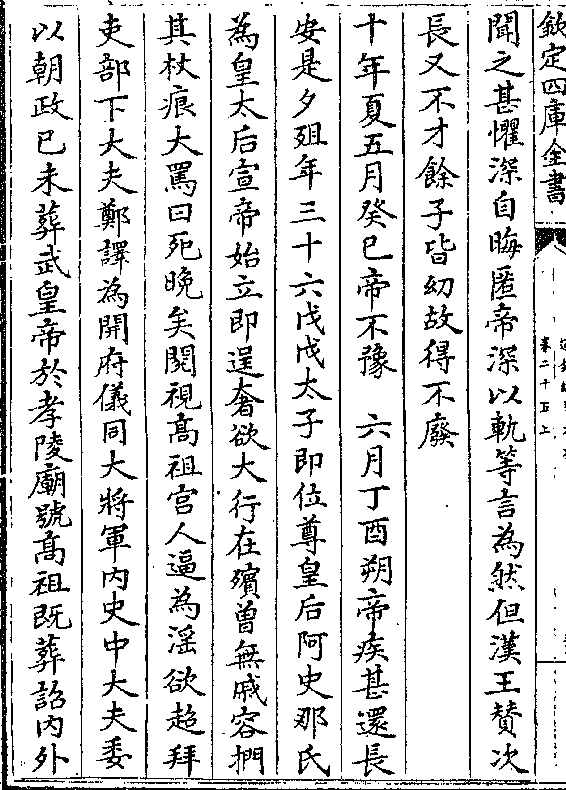 欽定四庫全書
卷二十五上
聞之甚懼深自晦匿帝深以軌等言為然但漢王賛次
長又不才餘子皆幼故得不廢
十年夏五月癸巳帝不豫　六月丁酉朔帝疾甚還長
安是夕殂年三十六戊戌太子即位尊皇后阿史那氏
為皇太后宣帝始立即逞奢欲大行在殯曽無戚容捫
其杖痕大罵曰死晚矣閱視髙祖宫人逼為滛欲超拜
吏部下大夫鄭譯為開府儀同大將軍内史中大夫委
以朝政已未葬武皇帝於孝陵廟號髙祖既葬詔内外